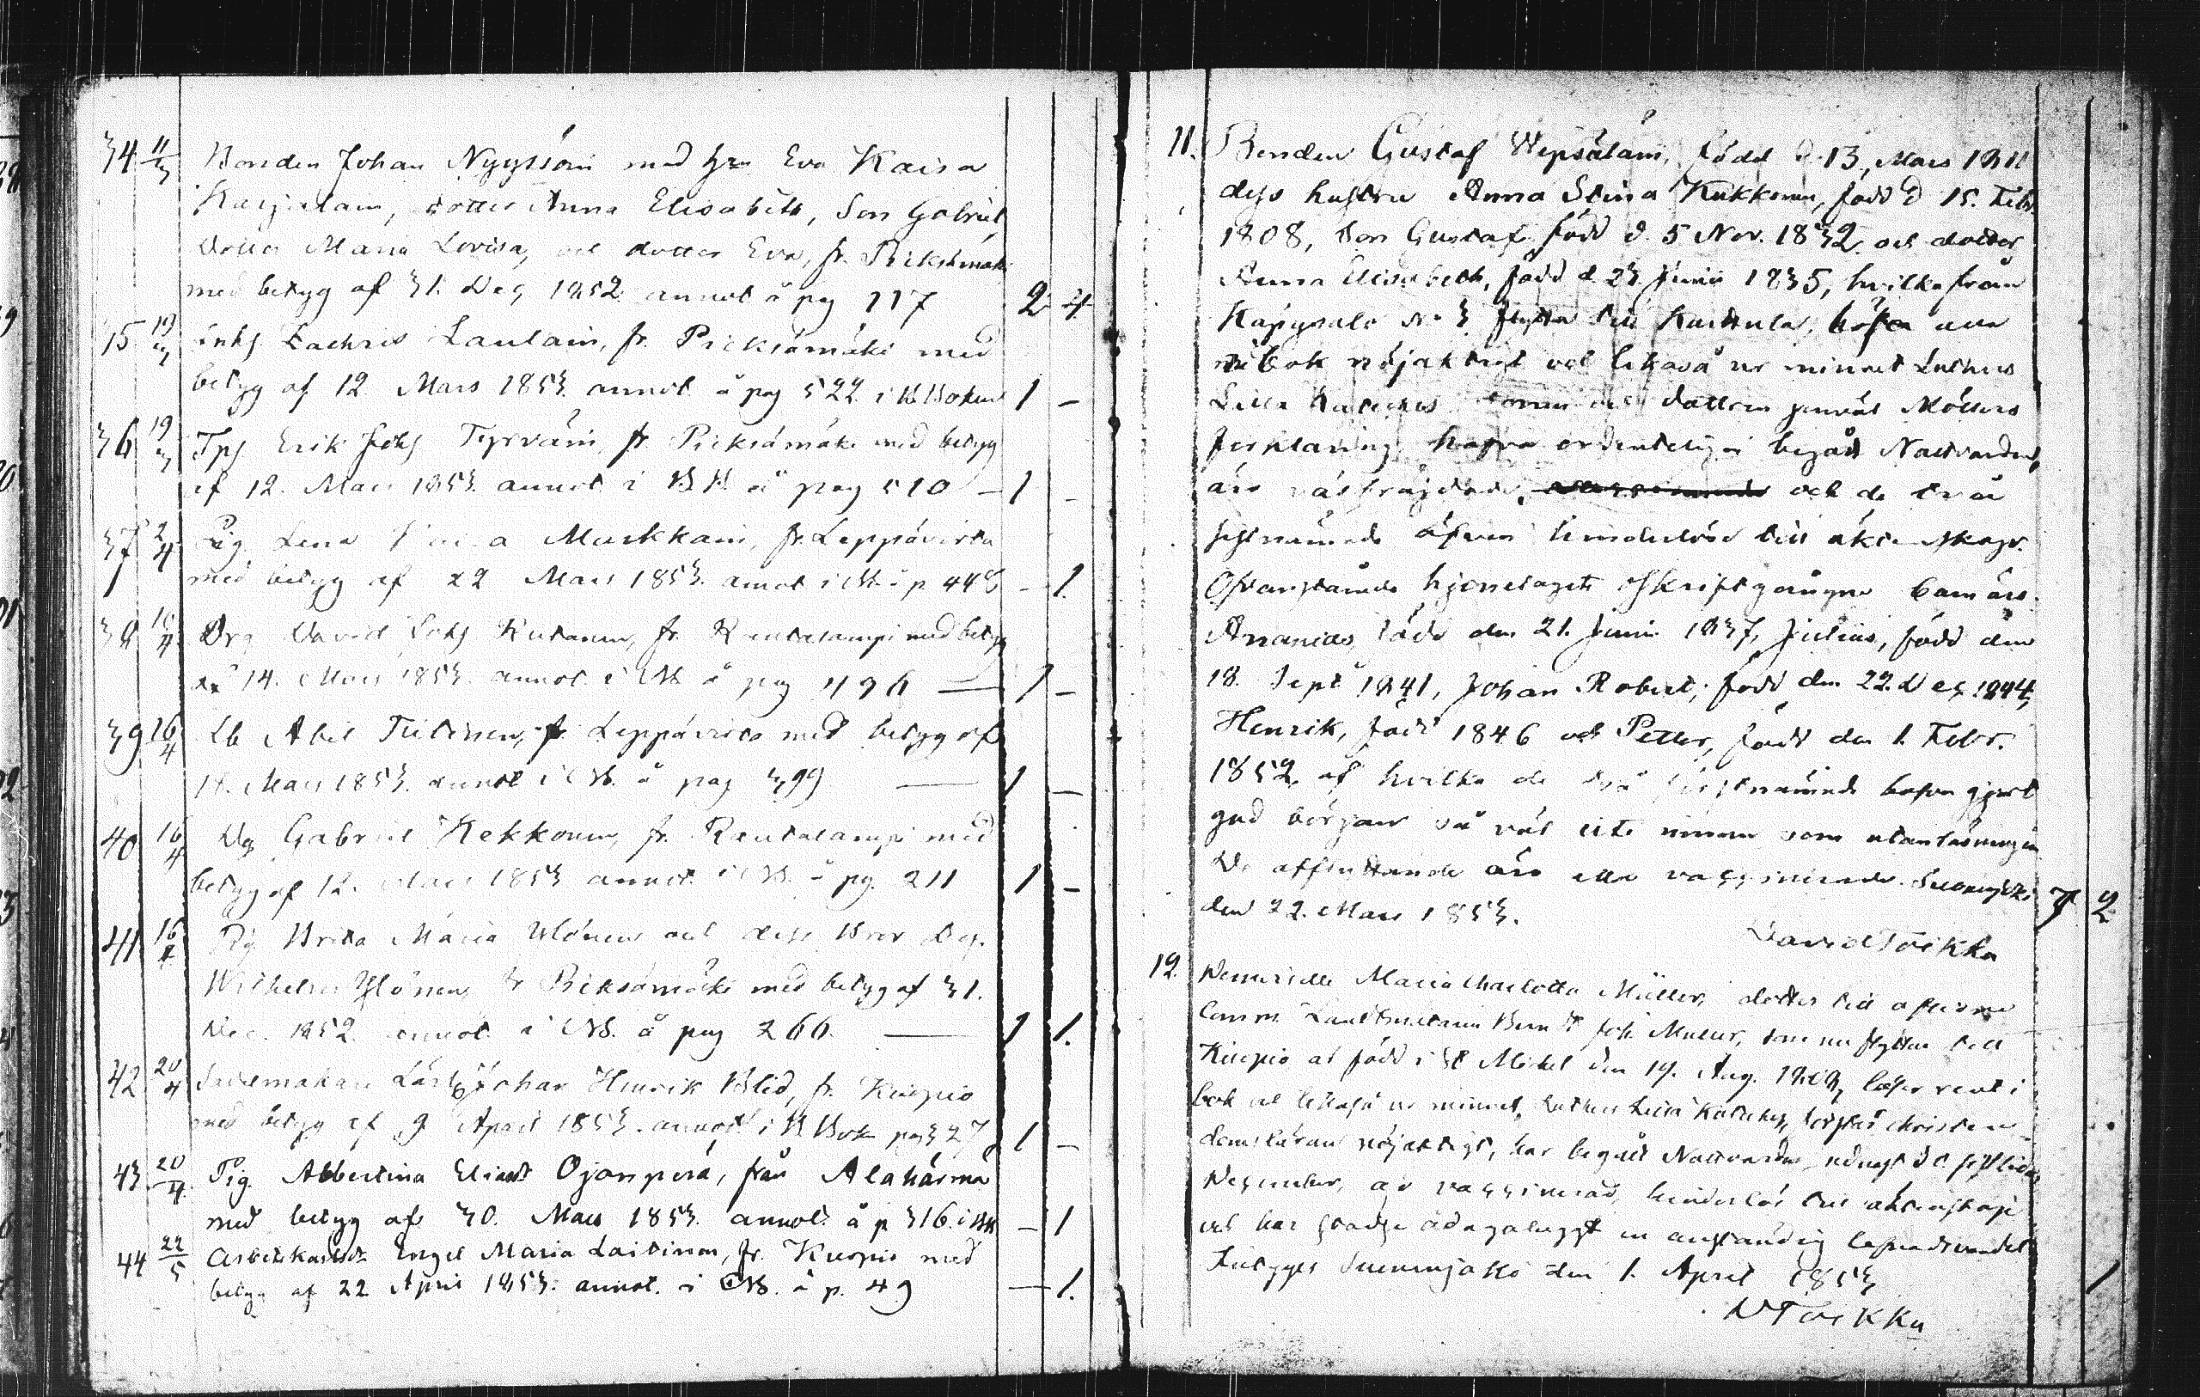 34 11/3 Bonden Johan Nyyssöin med hu Eva Kaisa
Karjalain, dotter Anna Elisabeth, Son Gabriel,
Dotter Maria Lovisa, och dotter Eva, fr. Pieksämäki
med betyg af 31. Dec 1852 annot å pag 117 2 4
35 19/3 Inhs Zachris Laulain, fr. Pieksämäki med
betyg af 12 Mars 1853 annot å pag 522 i K Boken 1 –
36 19/3 Tps Erik Johs Tyrväin, fr. Pieksämäki med betyg
af 12. Mars 1853. annot i KB å pag 510 – 1 –
37 2/4 Pig. Lena Murkkain, fr. Leppävirta
med betyg af 22 Mars 1853. annot i KB å p 448 – 1.
38 16/4 Drg David Johs Kutanen, fr. Rautalampi med betyg
af 14. Mars 1853. annot. i KB å pag 496 — 1 –
39 16/4 Lb Abel Tiitinen, fr. Leppävirta med betyg af
14. Mars 1853. annot i KB. å pag 399 — 1 –
40 16/4 Dg Gabriel Kekkonen, fr. Rautalampi med
betyg af 12. Mars 1853 annot. i KB. å pg. 211 1 –
41 16/4 Pig. Brita Maria Ylönen och dess Bror Dg.
Wilhelm Ylönen, fr Pieksämäki med betyg af 31.
Dec. 1852. annot i KB. å pag 266. — 1 1.
42 20/4 Sadelmakare Lärl Johan Henrik Blid, fr. Kuopio
med betyg af 9 April 1853. annot i K Bok pag 327 1 –
43 20/4 Pig. Albertina Eliasd Ojanperä, från Alahärmä
med betyg af 30. Mars 1853. annot. å p 316. i KB – 1
44 22/5 Arbetskarlsd. Engel Maria Laitinen, fr. Kuopio med
betyg af 22 April 1853. annot. i KB. å p. 49 — 1.
11. Bonden Gustaf Wepsäläin, född d. 13, Mars 1811
dess hustru Anna Stina Kukkonen, född d 15. Febr.
1808, Son Gustaf född d. 5 Nov. 1832 och dotter
Anna Elisabeth, född d 23 Junii 1835, hvilka från
Käpysalo No 3 flytta till Karttula, läsa alla
i bok nöjaktigt och likaså ur minnet Luthers
Lilla Kateches sonen och dottren jemväl Möllers
förklaring, hafva ordenteligen begått Nattvarden,
äro väl frejdade, och de två
sistnämnde äfven hinderlöse till äktenskap.
Ofvanstående hjonelagets oskriftgångne barn äro.
Ananias född den 21. Junii 1837, Julius, född den
18. Sept 1841, Johan Robert, född den 22. Dec 1844,
Henrik, född 1846 och Petter, född den 1. Febr.
1852, af hvilka de två förstnämnde hafva gjort
god början så väl uti innan som utanläsningen
De afflyttande äro alla vaccinerade. Suonenjoki
den 22. Mars 1853. 7 2
David Toikka
12. Demoiselle Maria Charlotta Müller, dotter till aflidne
Comm. Landtmätaren Bernt Joh. Müller, som nu flyttar till
Kuopio är född i St Michel den 19. Aug. 1808, läser rent i
bok och likaså ur minnet, Luthers Lilla Kateches, förstår christen
domsläran nöjaktigt, har begått Nattvarden, senast d sistlidne
December, är vaccinerad, hinderlös till äktenskap
och har städse ådagalaggt en anständig lefnadsvandel
Intygar Suonenjoki den 1. April 1853 1
D Toikka